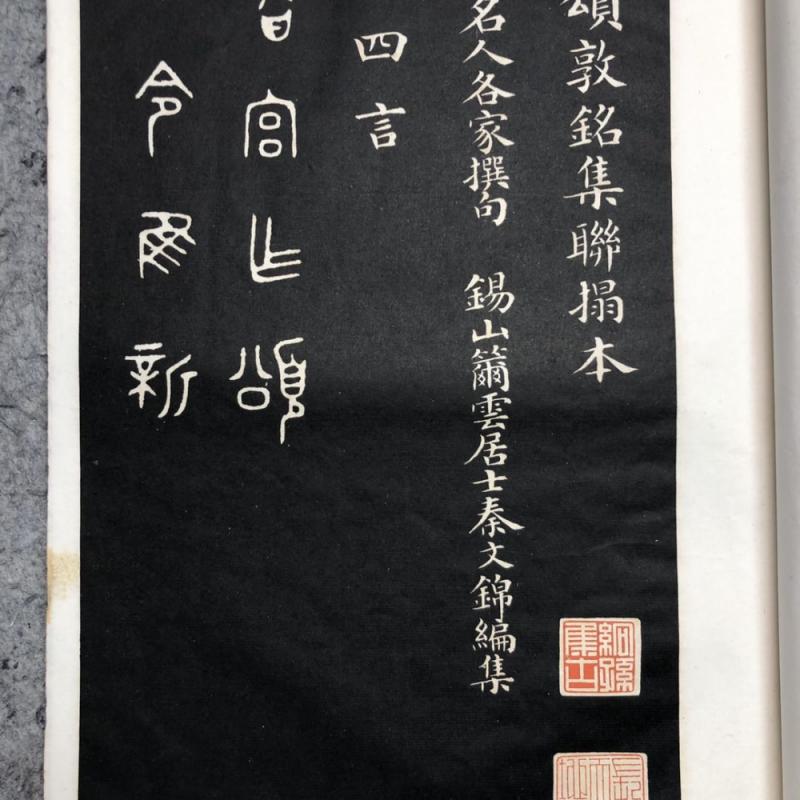 頌敦銘集聯搨本
名人各家撰句 錫山籋雲居士秦文錦編集
四言
宮乍頌
令新
絅孫集古